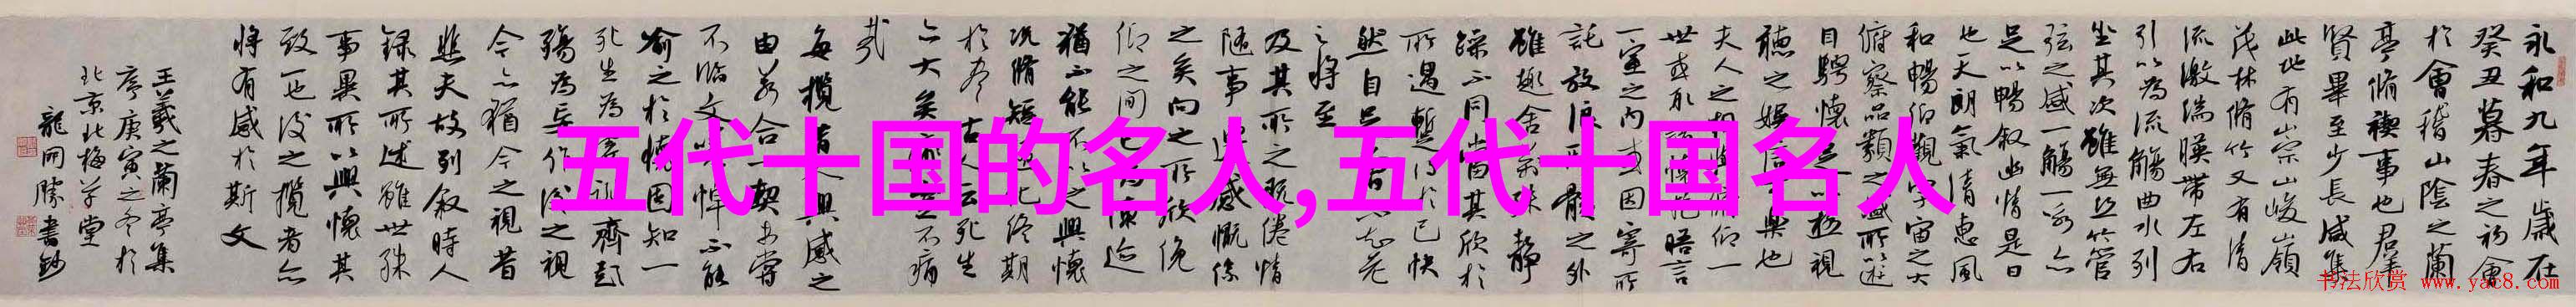 永和九年歲在
癸丑暮春之初會
於會稽山陰之蘭
亭脩禊事也群
賢畢至少長咸集
此地有崇山峻嶺
茂林脩竹又有清
流激湍暎帶左右
引以為流觴曲水列
坐其次雖無絲竹管
弦之盛一觴一詠亦
足以暢敘幽情是日
也天朗氣清惠風
和暢仰觀宇宙之大
俯察品類之盛所以遊
目騁懷足以極視
聽之娛信可樂也
夫人之相與俯仰一
世或取諸懷抱晤言
一室之內或因寄所
託放浪形骸之外
雖趣舍萬殊靜
躁不同當其欣於
所遇蹔得於己快
然自足不知老
之將至
及其所之既倦情
隨事遷感慨係
之矣向之所欣俛
仰之間已為陳迹
猶不能不以之興懷
況脩短隨化終期
於盡古人云死生
亦大矣豈不痛
哉
每攬昔人興感之
由若合一契未嘗
不臨文嗟悼不能
喻之於懷固知一
死生為虛誕齊彭
殤為妄作後之視
今亦猶今之視昔
悲夫故列敘時人
錄其所述雖世殊
事異所以興懷其
致一也後之攬者亦
將有感於斯文
王羲之蘭亭集
序庚寅之冬於
北京北梅草堂
龍開勝書鈔
五代十国的名人,五代十国名人
书法欣赏 www.yac8.com